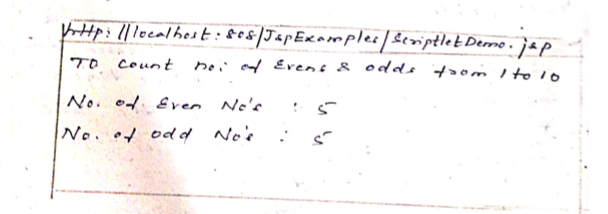 http://localhost:808/JspExamples/ScriptletDemo.jsp
To count no: of Evens & odds from 1 to 10
No. of Even No's : 5
No. of odd No's : 5